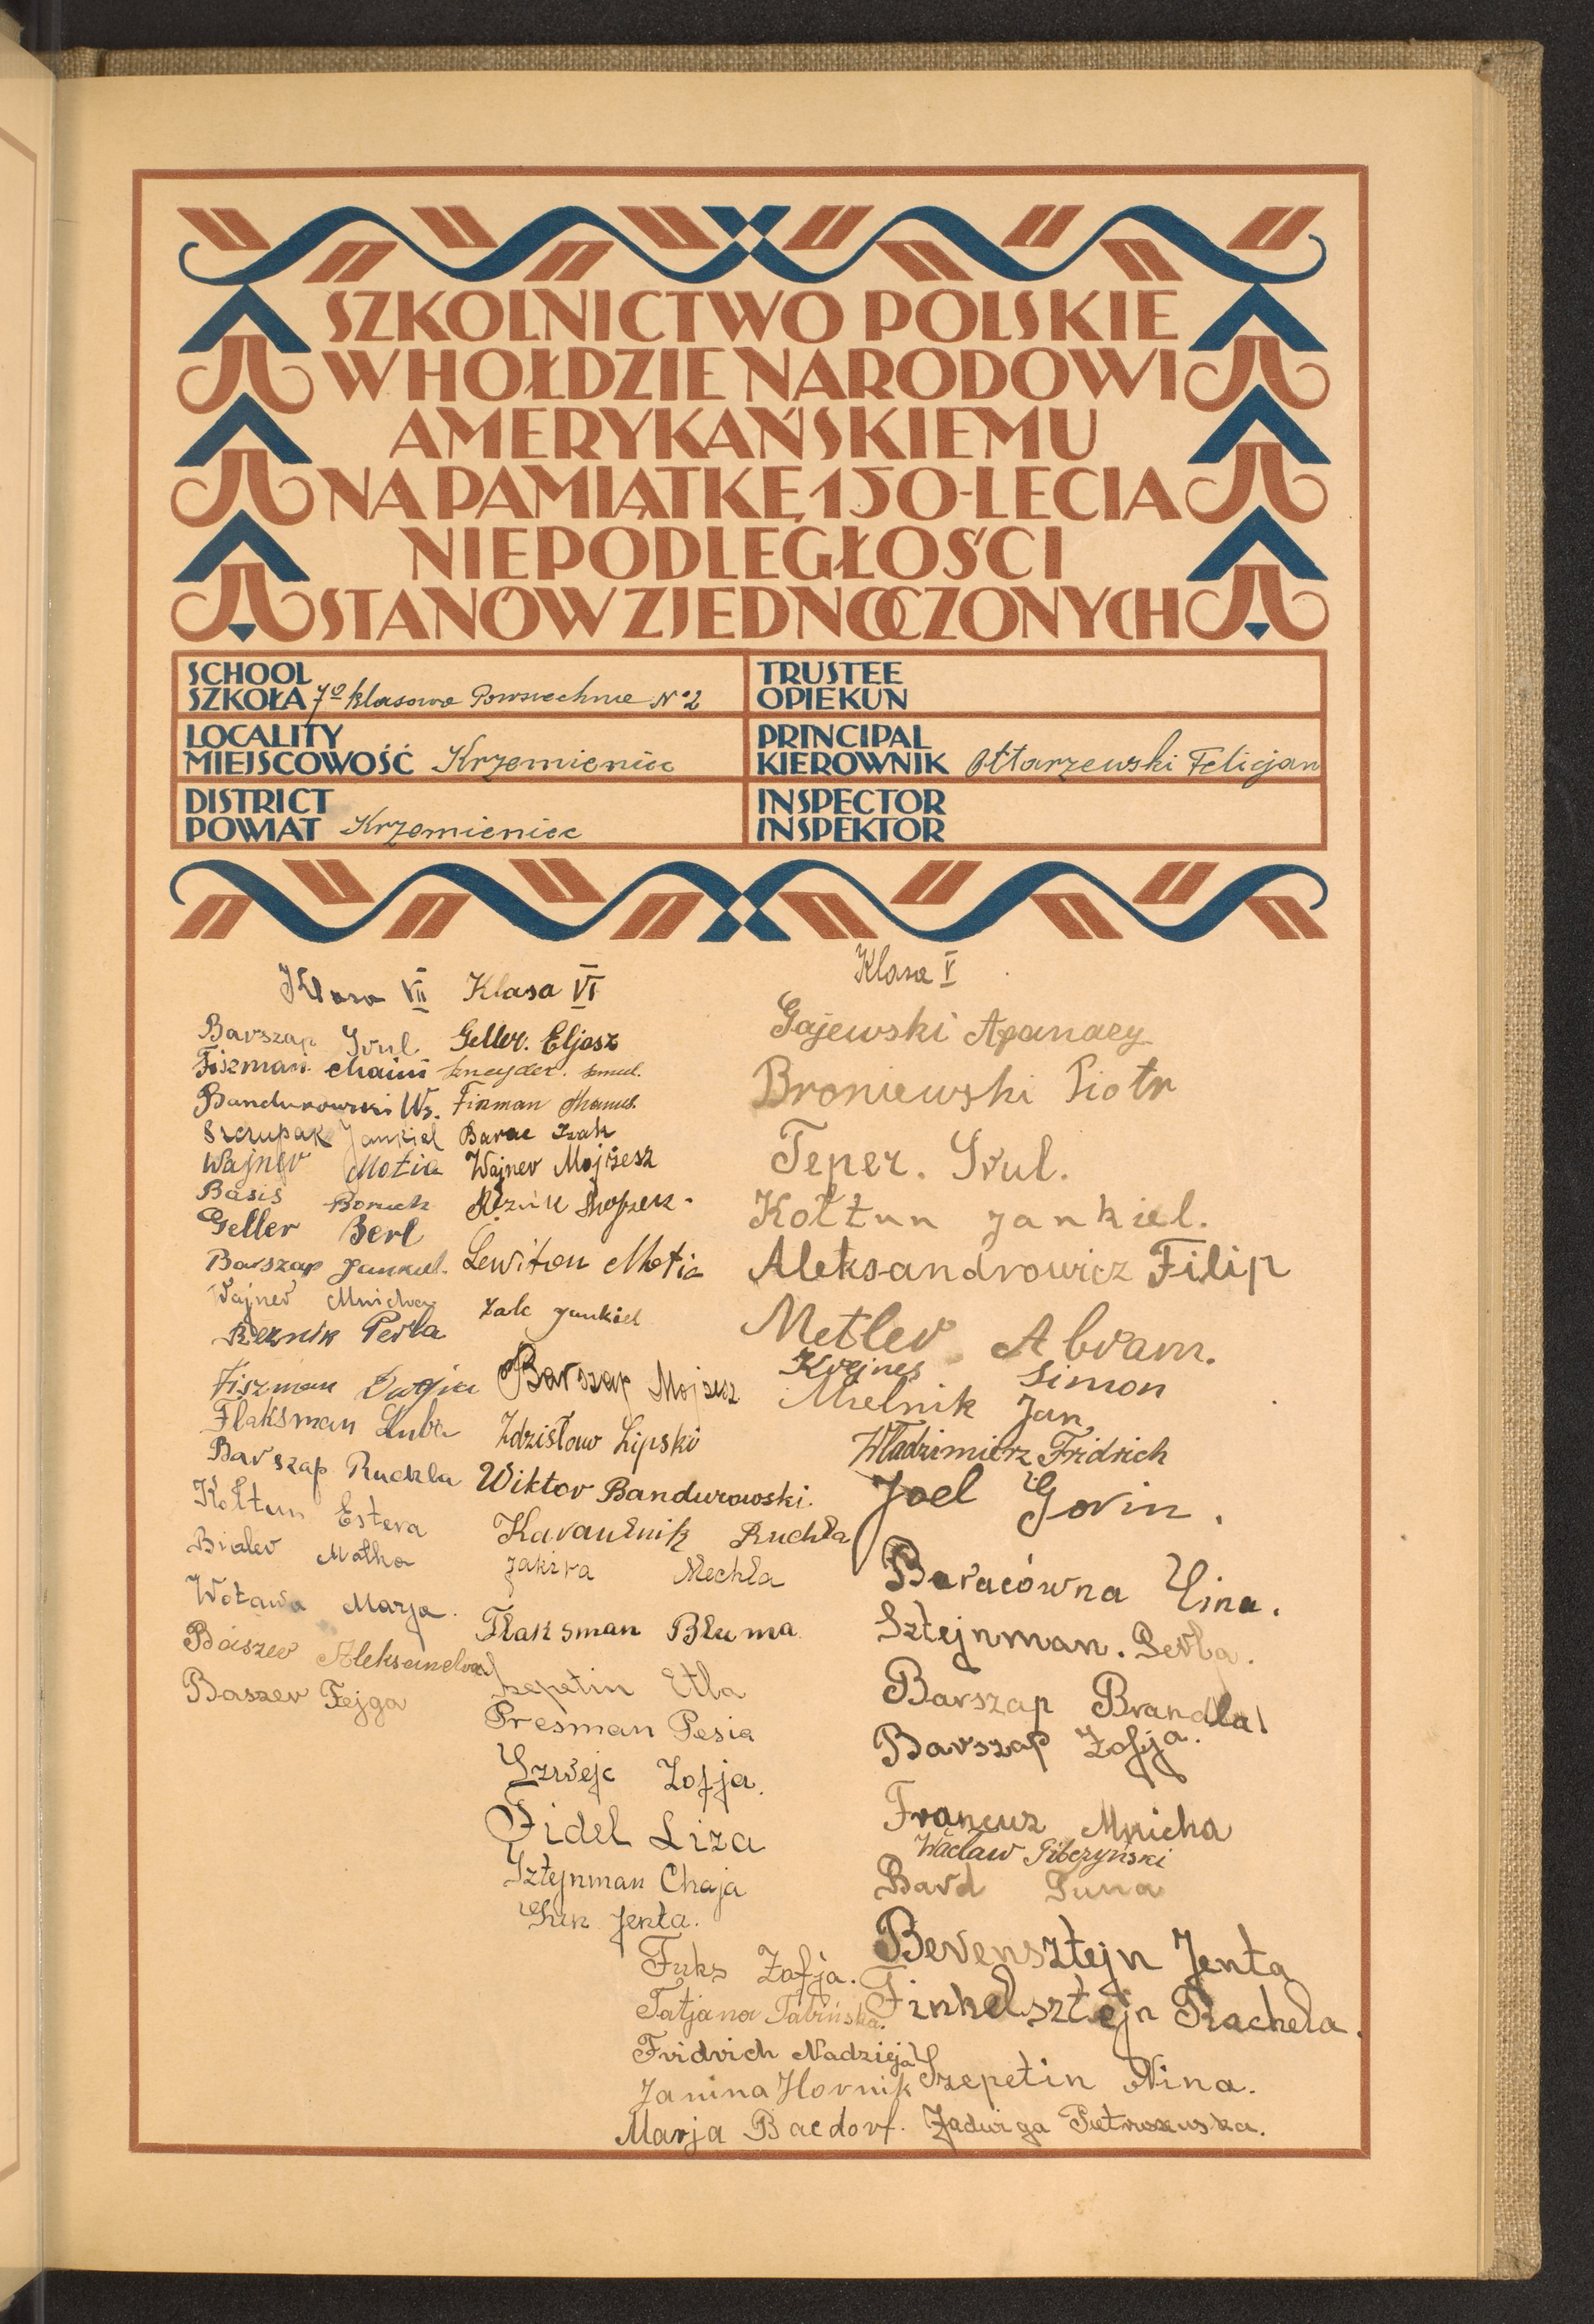 SZKOLNICTWO POLSKIE
W HOŁDZIE NARODOWI
AMERYKAŃSKIEMU
NA PAMIĄTKĘ 150-LECIA
NIEPODLEGŁOŚCI
STANÓW ZJEDNOCZONYCH
SCHOOL
SZKOŁA 7º klasowa Powszechna Nº 2
LOCALITY
MIEJSCOWOŚĆ Krzemieniec
DISTRICT
POWIAT Krzemieniec
TRUSTEE
OPIEKUN
PRINCIPAL
KIEROWNIK Ołtarzewski Felicjan
INSPECTOR
INSPEKTOR
Klasa VII
Barszap Srul
Fiszman Chaim
Bandurowski Ws.
Szczupak Jankiel
Wajner Motia
Basis Boruch
Geller Berl
Barszap Jankiel.
Wajner Mnicha
Reznik Perla
Fiszman
Flaksman Luba
Barszap Ruchla
Kołtun Estera
Bialer Matka
Wotawa Marja.
Baszer Aleksandra
Baszer Fejga
Klasa VI
Geller. Eljasz
Sznejder. Szmul.
Fiszman
Barac Izak
Wajner Mojżesz
Reznik Moszek.
Lewiton Motia
Zalc Jankiel
Barszap Mojżesz
Zdzisław Lipski
Wiktor Bandurowski.
Karaulnik Ruchla
Jakira Mechla
Flaksman Bluma
Szepetin Etla
Presman Pesia
Szwejc Zofja.
Fidel Liza
Sztejnman Chaja
Jenta.
Fuks Zofja.
Tatjana Tabińska.
Fridrich Nadzieja
Janina Hornik
Marja Bacdorf.
Klasa V
Gajewski Apanacy
Broniewski Piotr
Teper. Srul.
Kołtun Jankiel.
Aleksandrowicz Filip
Metler Abram.
Krejnes Simon
Mielnik Jan
Władzimierz Fridrich
Joel Gorin.
Baracówna Hina.
Sztejnman. Perla.
Barszap Brandla!
Barszap Zofja.
Francuz Mnicha
Wacław Gibczyński
Bard Suna
Berensztejn Jenta
Finkelsztejn Rachela.
Szepetin Nina.
Jadwiga Pietruszewska.